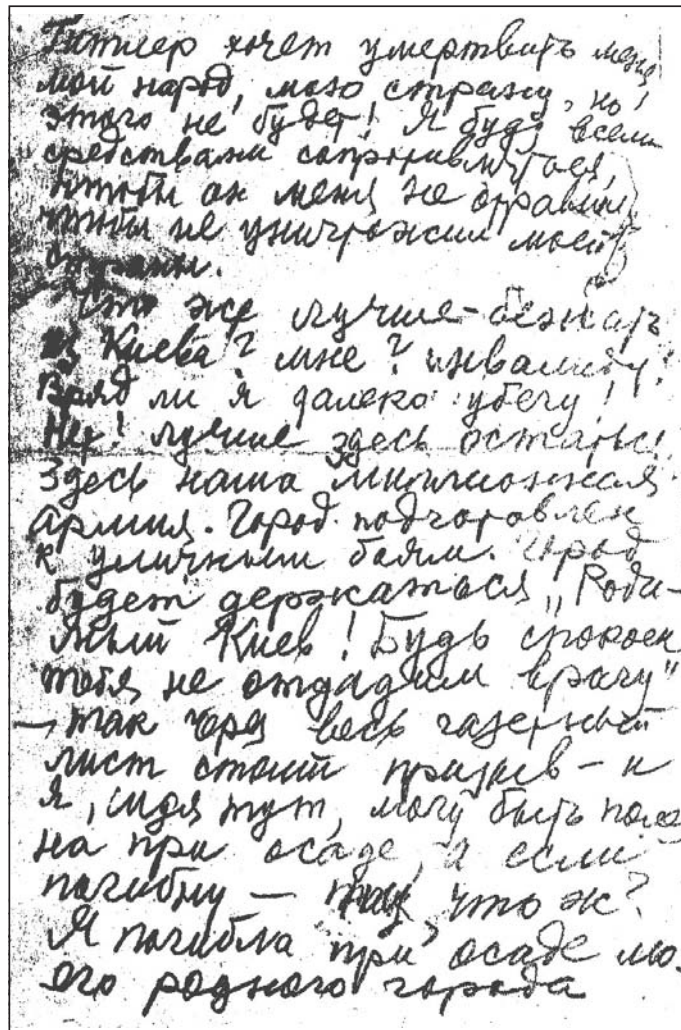 Гитлер хочет умертвить меня,
мой народ, мою страну, но
этого не будет! Я буду всеми
средствами сопротивляться,
чтобы он меня не отравил,
чтобы не уничтожил моей
страны.
Что же лучше – бежать
из Киева? мне? инвалиду!
Вряд ли я далеко убегу!
Нет! лучше здесь остаться!
Здесь наша миллионная
армия. Город подготовлен
к уличным боям. Город
будет держаться „Роди-
мый Киев! Будь спокоен
тебя не отдадим врагу"
– так чрез весь газетный
лист стоит призыв – и
я, сидя тут, могу быть полез
на при осаде, а если
погибну – так что ж?
Я погибла при осаде мо
его родного города